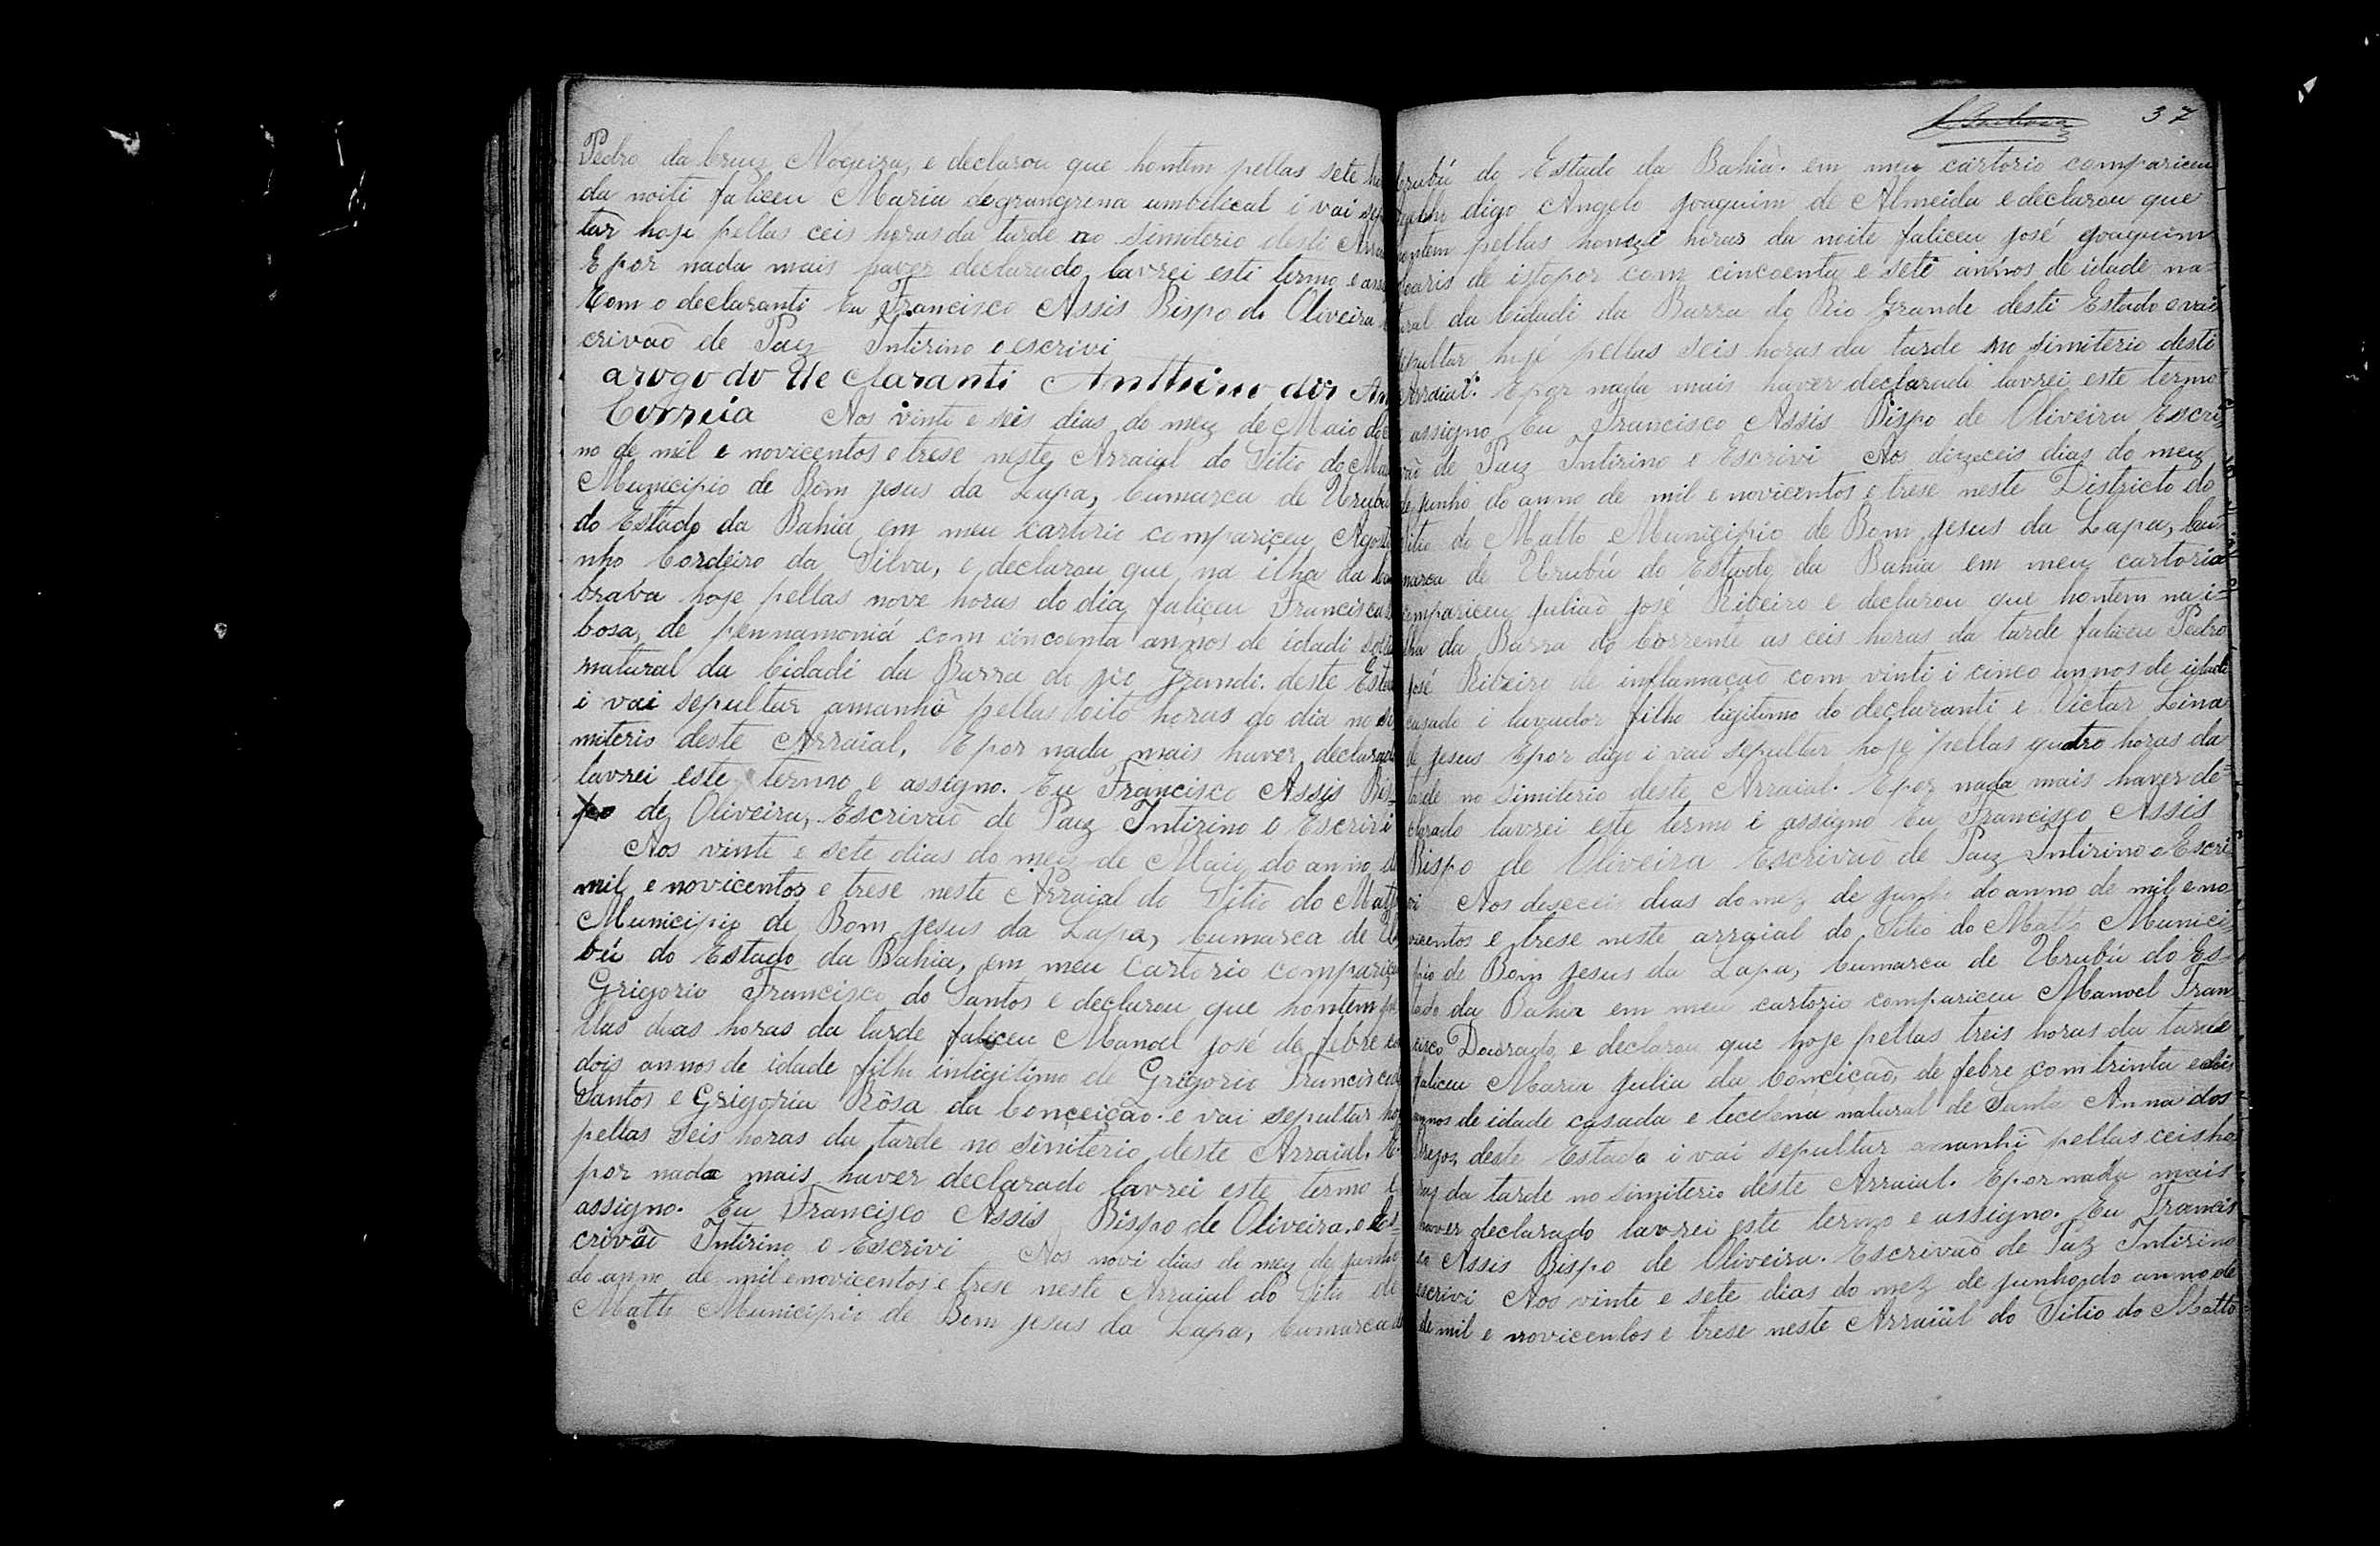 Pedro da Cruz Nogueira, e declarou que hontem pellas sete ho
da noiti faliceu Maria de grangrena umbelical i vai sepul
tar hoje pellas ceis horas da tarde no simiterio desti Arra
E por nada mais haver declarado, lavrei esti termo e ass
Com o declaranti Eu Francisco Assis Bispo de Oliveira
crivaõ de Paz Intirino o escrivi
arogo do Declaranti
Correia Aos vinti e seis dias do mez de Maio do
no de mil e novicentos e trese neste Arraial do Sitio do Ma
Municipio de Bom Jesus da Lapa, Cumarca de Urubu
do Estado da Bahia em meu cartorio compariceu Agosti
nho Cordeiro da Silva, e declarou que na ilha da
brava hoje pellas nove horas do dia faliceu Francisca
bosa, de pennamoniá com cincoenta annos de idadi
natural da Cidadi da Barra do Rio Grandi. deste Esta
i vai sepultar amanhã pellas oito horas do dia no si
miterio deste Arraial. E por nada mais haver declarado
lavrei este termo e assigno. Eu Francisco Assis Bis-
po de Oliveira, Escrivaõ de Paiz Intirino o Escrivi
Aos vinte e sete dias do mez de Maio do anno de
mil e novicentos e trese neste Arraial do Sitio do Matt
Municipio de Bom Jesus da Lapa, Cumarca de Uru
bú do Estado da Bahia, em meu Cartorio compariceu
Grigorio Francisco do Santos e declarou que hontem pe
llas duas horas da tarde faliceu Manoel José de febre com
dois annos de idade filho inligitimo de Grigorio Francisco
Santos e Grigoria Rosa da Conceiçaõ. e vai sepultar hoj
pellas seis horas da tarde no simiterio deste Arraial. E
por nada mais haver declarado lavrei este termo e
assigno. Eu Francisco Assis Bispo de Oliveira. o Es-
crivaõ Intirino o Escrivi Aos novi dias do mez de junho
do anno de mil e novicentos e trese neste Arraial do Sitio do
Matto Municipio de Bom Jesus da Lapa, Cumarca de
37
Urubú do Estado da Bahia. em meu cartorio compariceu
digo Angelo Joaquim de Almeida e declarou que
hontem pellas honze horas da noite faliceu José Joaquim
de istopor com cincoenta e seti annos de idade na-
tural da Cidadi da Barra do Rio Grande desti Estado e vai
sepultar hoje pellas seis horas da tarde no simiterio desti
Arraial. E por nada mais haver declarado lavrei este termo
assigno Eu Francisco Assis Bispo de Oliveira Escri-
vaõ de Paiz Intirino o Escrivi Aos dizeceis dias do mez
de junho do anno de mil e novicentos e trese neste Districto do
Sitio do Matto Municipio de Bom Jesus da Lapa, Cu-
marca de Urubú do Estado da Bahia em meu cartorio
compariceu Juliaõ José Ribeiro e declarou que hontem na i-
lha da Barra do Corrente as ceis horas da tarde faliceu Pedro
José Ribeiro de inflamaçaõ com vinti i cinco annos de idade
casado i lavrador filho ligitimo do declaranti e Victar Lina
de Jesus E por digo i vai sepultar hoje pellas quatro horas da
tarde no simiterio deste Arraial. E por nada mais haver de-
clarado lavrei este termo i assigno Eu Francisco Assis
Bispo de Oliveira Escrivaõ de Paiz Intirino o Escri-
vi Aos deseceis dias do mez de junho do anno de mil e no
vicentos e trese neste arraial do Sitio do Matto Munici-
pio de Bom Jesus da Lapa, Cumarca de Urubú do Es-
tado da Bahia em meu cartorio compariceu Manoel Fran
cisco Dourado e declarou que hoje pellas treis horas da tarde
faliceu Maria Julia da Conceiçaõ, de febre com trinta e dois
annos de idade casada e tecelona natural de Santa Anna dos
Brejos, deste Estado i vai sepultar amanhã pellas ceis ho
ras da tarde no simiterio deste Arraial. E por nada mais
haver declarado lavrei este termo e assigno. Eu Francis
co Assis Bispo de Oliveira. Escrivaõ de Paz Intirino
escrivi Aos vinte e sete dias do mez de junho, do anno de
de mil e novicentos e trese neste Arraial do Sitio do Matto